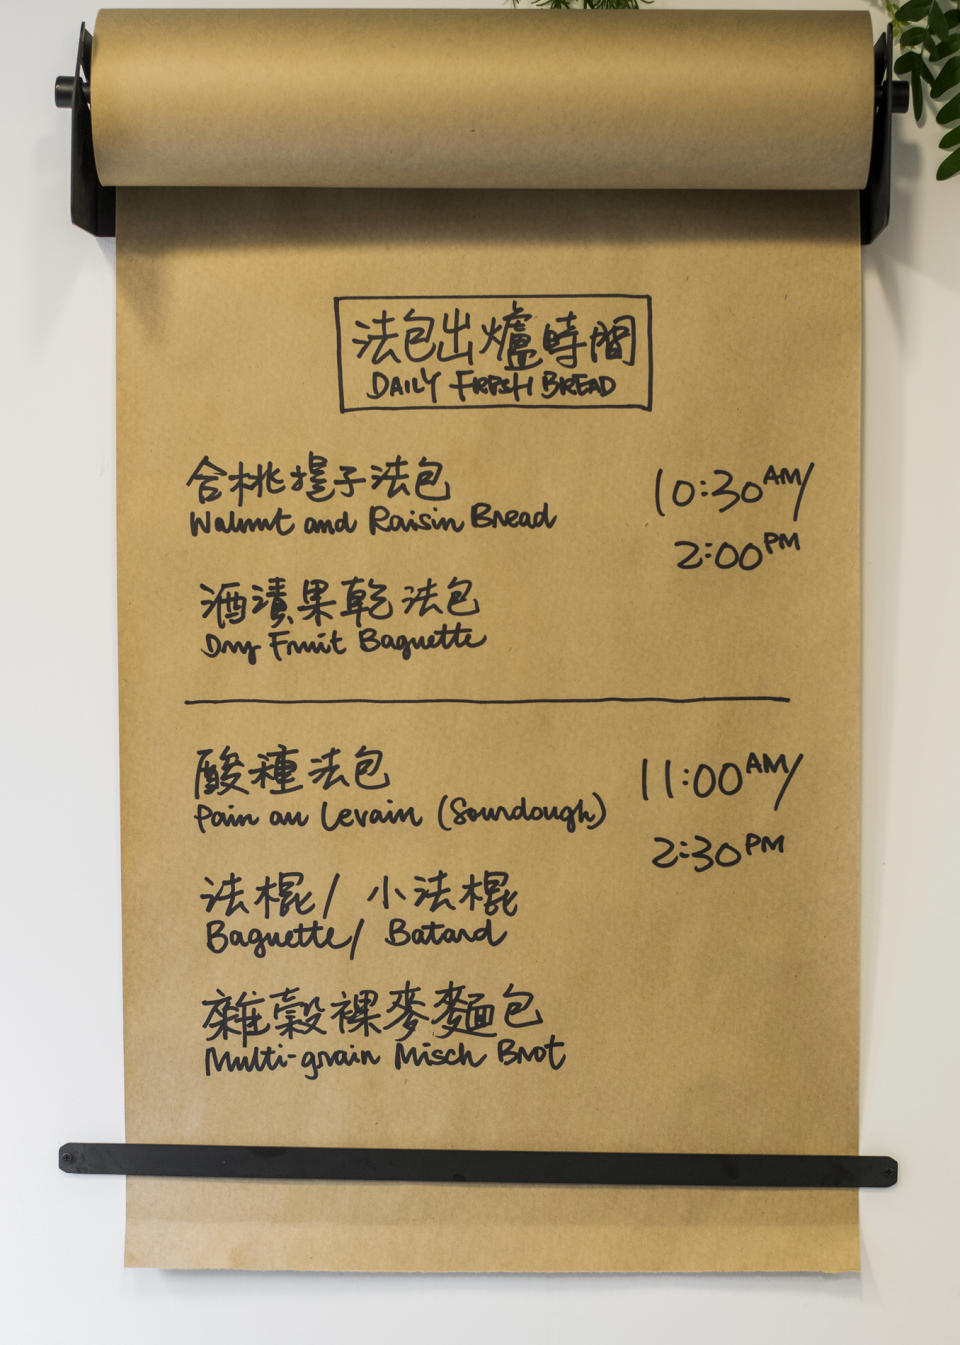 法包出爐時間
DAILY FRESH BREAD
合桃提子法包
Walnut and Raisin Bread
10:30AM/
2:00PM
酒漬果乾法包
Dry Fruit Baguette
酸種法包
Pain au Levain (Sourdough)
11:00AM/
2:30PM
法棍/ 小法棍
Baguette/ Batard
雜穀裸麥麵包
Multi-grain Misch Brot